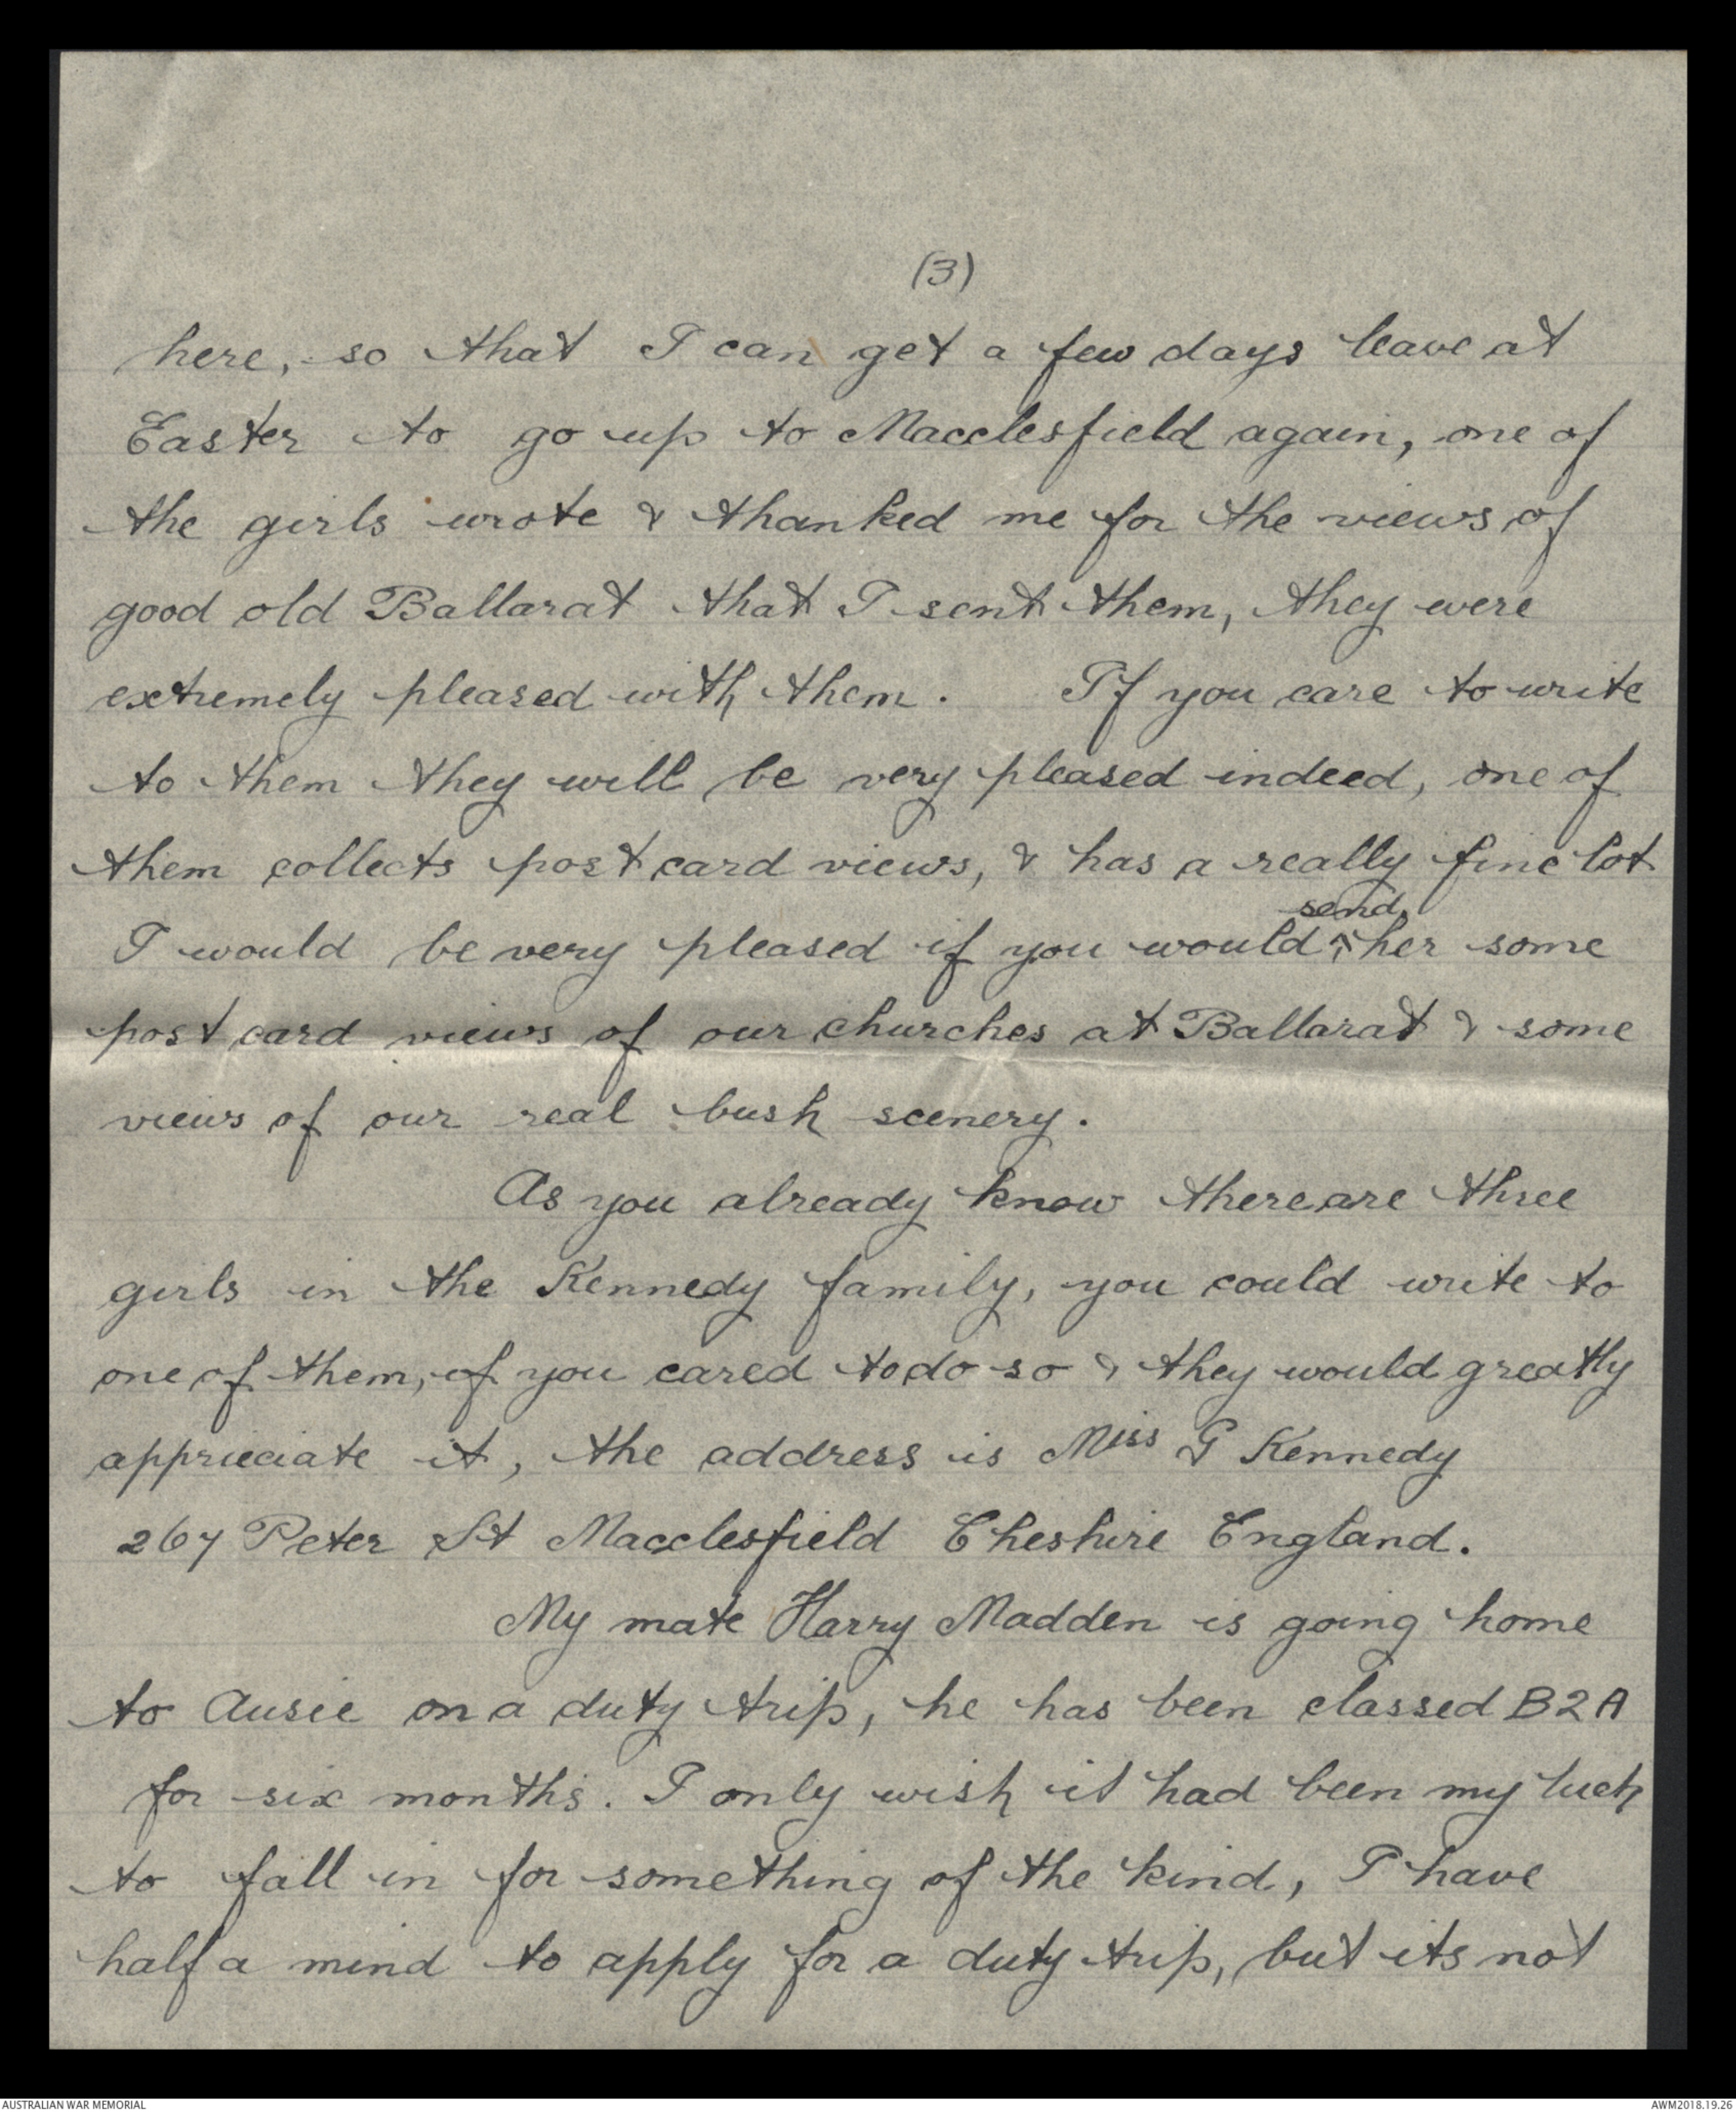 (3)
here, so that I can get a few days leave at
Easter to go up to Macclesfield again, one of
the girls wrote & thanked me for the views of
good old Ballarat that I sent them, they were
extremely pleased with them. If you care to write
to them they will be very pleased indeed, one of
them collects post card views, & has a really fine lot
send
I would be very pleased if you would ^ her some
post card views of our churches at Ballarat & some
views of our real bush scenery.
As you already know there are three
girls in the Kennedy family, you could write to
one of them, if you cared to do so & they would greatly
appriciate it, the address is Miss G Kennedy
267 Peter St Macclesfield Cheshire England.
My mate Harry Madden is going home
to Ausie on a duty trip, he has been classed B2A
for six months. I only wish it had been my luck
to fall in for something of the kind, I have
half a mind to apply for a duty trip, but its not
AUSTRALIAN WAR MEMORIAL
AWM2018.19.26